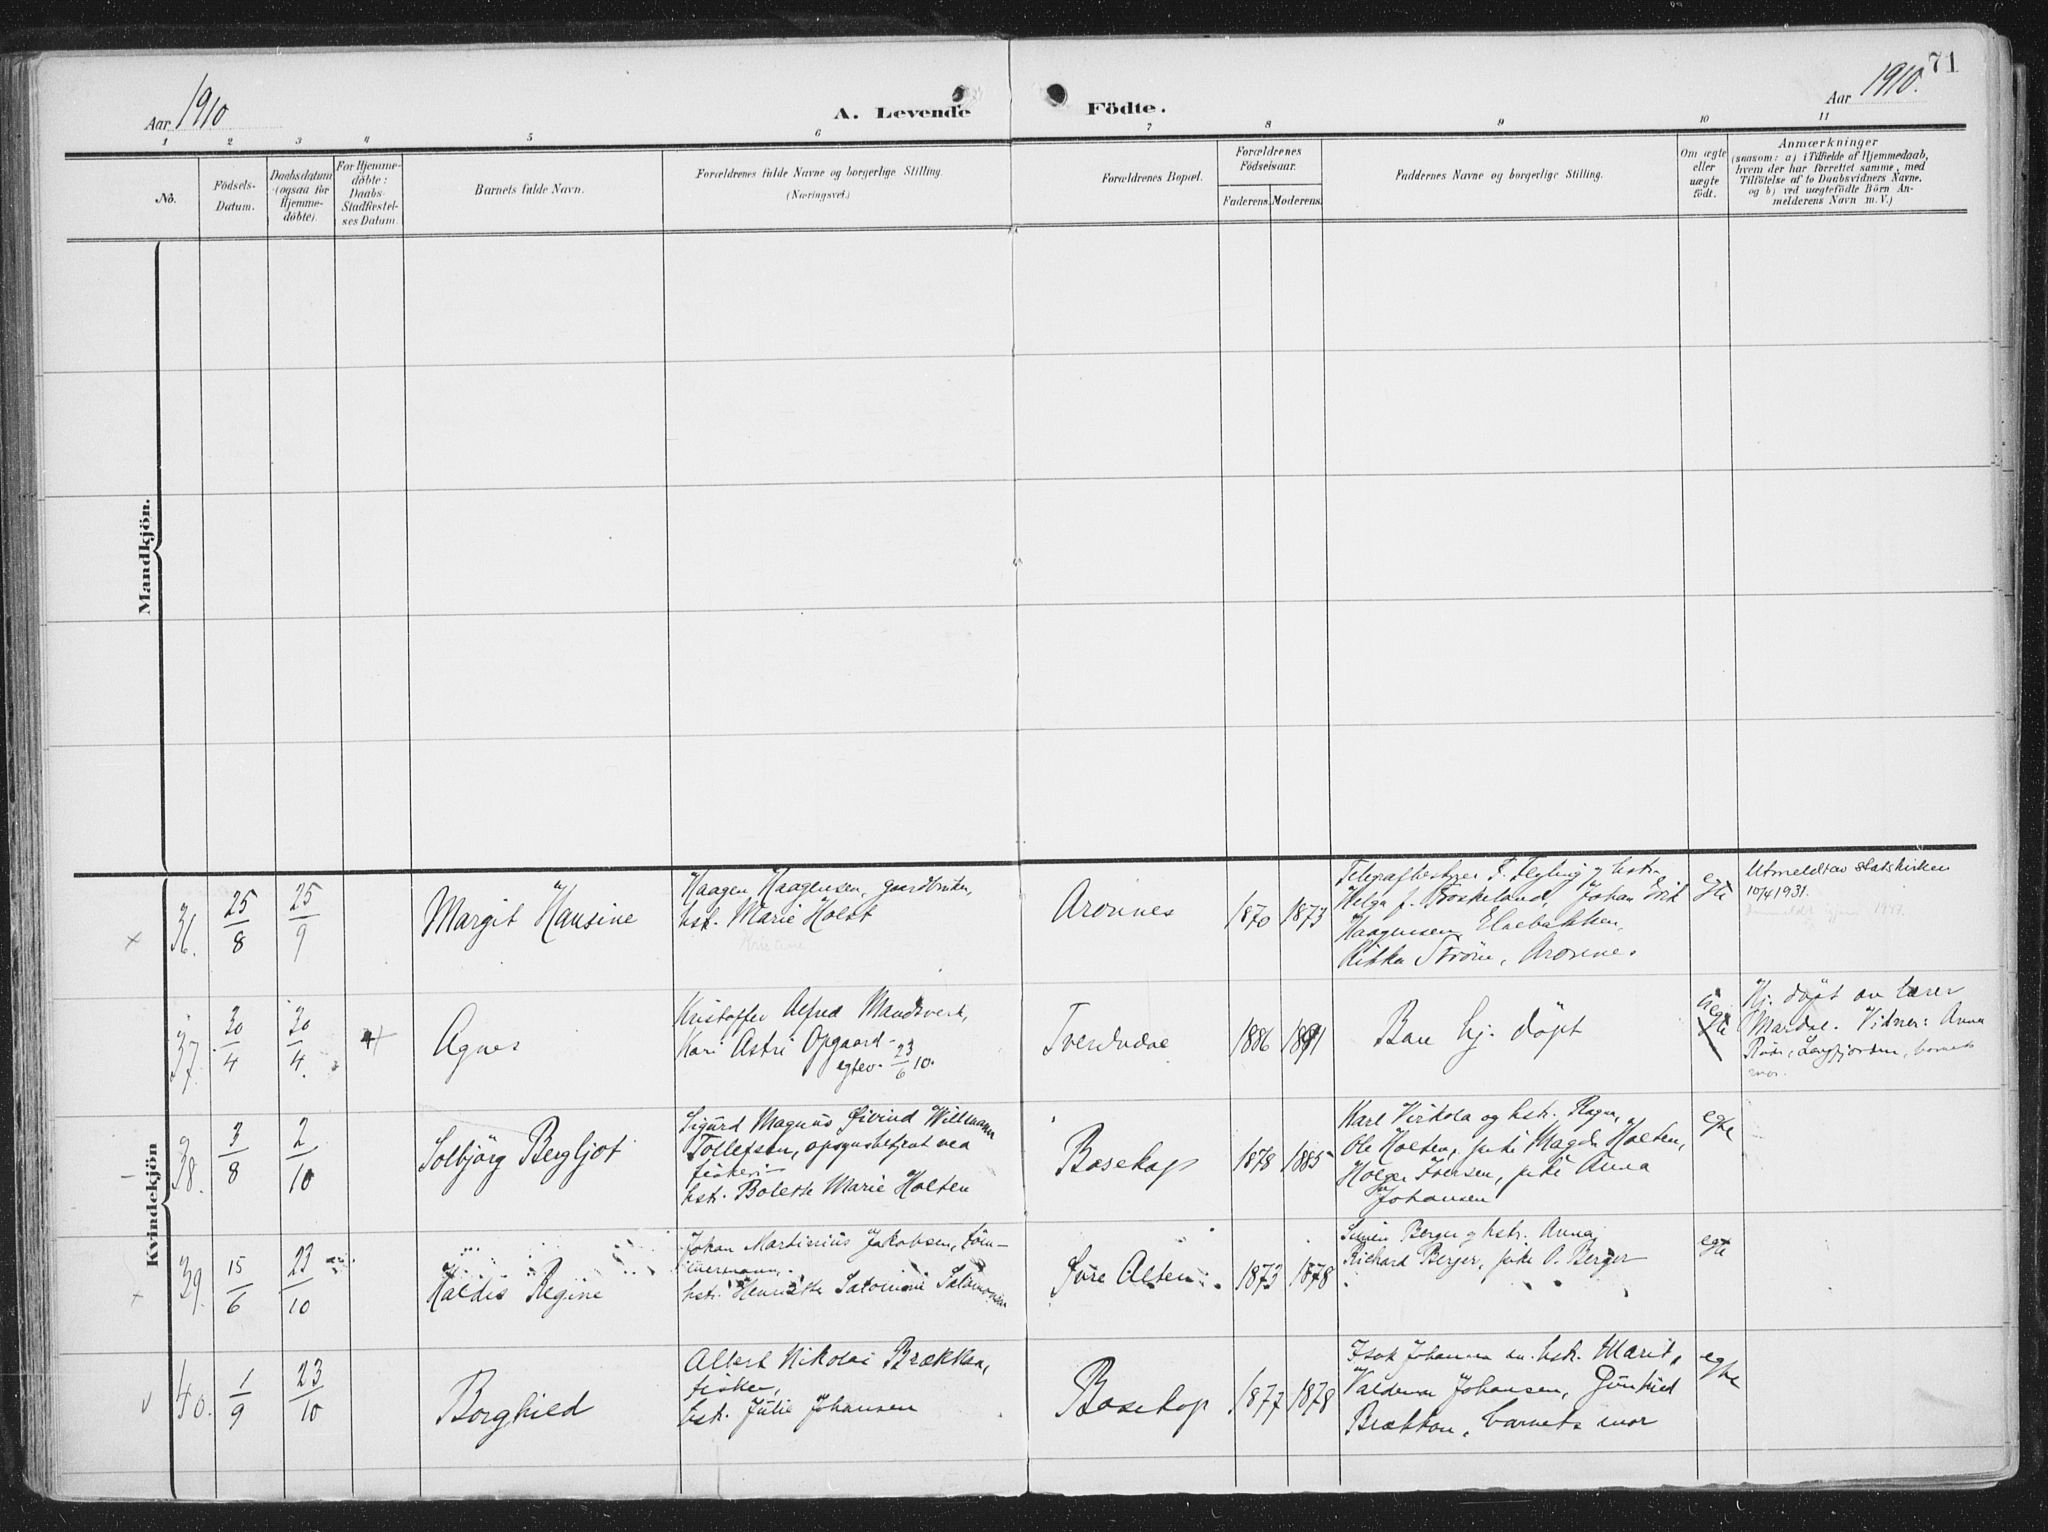 71
Aar 1910
A. Levende Födte.
Aar 1910.
1 2 3 4 5 6 7 8 9 10 11
No.
Födsels-Datum.
Daabsdatum (ogsaa for Hjemme-döbte).
For Hjemme-döbte: Daabs-Stadfæstel-ses Datum
Barnets fulde Navn.
Forældrenes fulde Navne og borgerlige Stilling.
(Næringsvei.)
Forældrenes Bopæl.
Forældrenes Födselsaar.
Faderens. Moderens.
Faddernes Navne og borgerlige Stilling.
Om ægte eller uægte födt.
Anmærkninger
(saasom: a) i Tilfælde af Hjemmedaab,
hvem der har forrettet samme, med
Tilföielse af to Daabsvidners Navne.
og b) ved uægtefödte Börn An-
melderens Navn m. V.)
Mandkjön.
Kvindekjön
36. 25/8 25/9
Margit Hansine
Haagen Haagensen, gaardbruker,
hst. Marie Holst
Kristine
Aronnes
1870 1873
Telegrafbestyrer F. Flegling og hstr.
Helga f. Froskeland, Johan Erik
Haagensen Elvebakken,
Rikka Strøm, Aronnes.
egte
Utmeldt av statskirken
10/4 1931.
37. 30/4 30/4
Agnes
Kristoffer Alfred Mandsverk,
Kari Astri Opgaard
egtev. 23/6 10.
Tverdvdal
1886 1891
Barn hj. døpt
uegte
Hj. døpt av lærer
Mardal. Vidner: Anna
Langfjorden, barnets
mor.
38. 3/8 2/10
Solbjörg Bergljot
Sigurd Magnus Øivind Willmann
Tollefsen, opsynsbetjent ved
fiskeri
hst. Bolette Marie Holten
Bosekop
1878 1885
Karl Virkola og hstr. Ragna,
Ole Holten, pike Magda Holten,
Holger Iversen, pike Anna
Johansen
egte
39. 15/6 23/10
Haldis Regine
Johan Martinius Jakobsen, töm-
mermann,
hst. Henriette Salomine Salamonsen
Øvre Alten
1873 1878
Simen Berger og hstr. Anna,
Richard Berger, pike O. Berger
egte
40. 1/9 23/10
Borghild
Albert Nikolai Brækkan,
fisker,
hst. Julie Johansen
Bosekop
1877 1878
Isak Johansen m. hstr. Marit,
Valdemar Johansen, Gunhild
Brækkan, barnets mor
egte